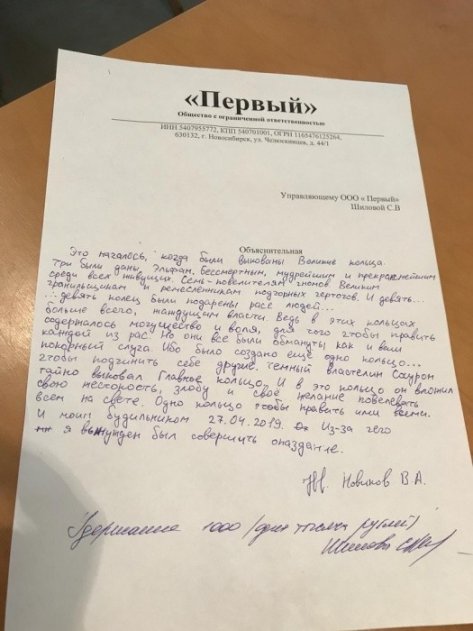 «Первый»
Общество с ограниченной ответственностью
ИНН 5407955772, КПП 540701001, ОГРН 1165476125264,
630132, г. Новосибирск, ул. Челюскинцев, д. 44/1
Управляющему ООО « Первый»
Шиловой С.В
Объяснительная
Это началось, когда были выкованы Великие кольца.
Три были даны, эльфам, бессмертным, мудрейшим и прекраснейшим
среди всех живущих. Семь-повелителям гномов Великим
гранильщикам и ремесленникам подгорных чертогов. И девять...
...девять колец были подарены расе людей...
больше всего, жаждущим власти. Ведь в этих кольцах
содержалось могущество и воля, для того чтобы править
каждой из рас. Но они все были обмануты как и ваш
покорный слуга. Ибо было создано ещё одно кольцо...
чтобы подчинить себе другие. темный Властелин Саурон
тайно выковал Главное кольцо. И в это кольцо он вложил
свою жестокость, злобу и своё желание повелевать
всем на свете. Одно кольцо чтобы править ими всеми.
И моим будильником 27.04.2019. Из-за чего
я вынужден был совершить опаздание.
Новиков В.А.
Удержать 1000 (одна тысяча рублей)
Шилова